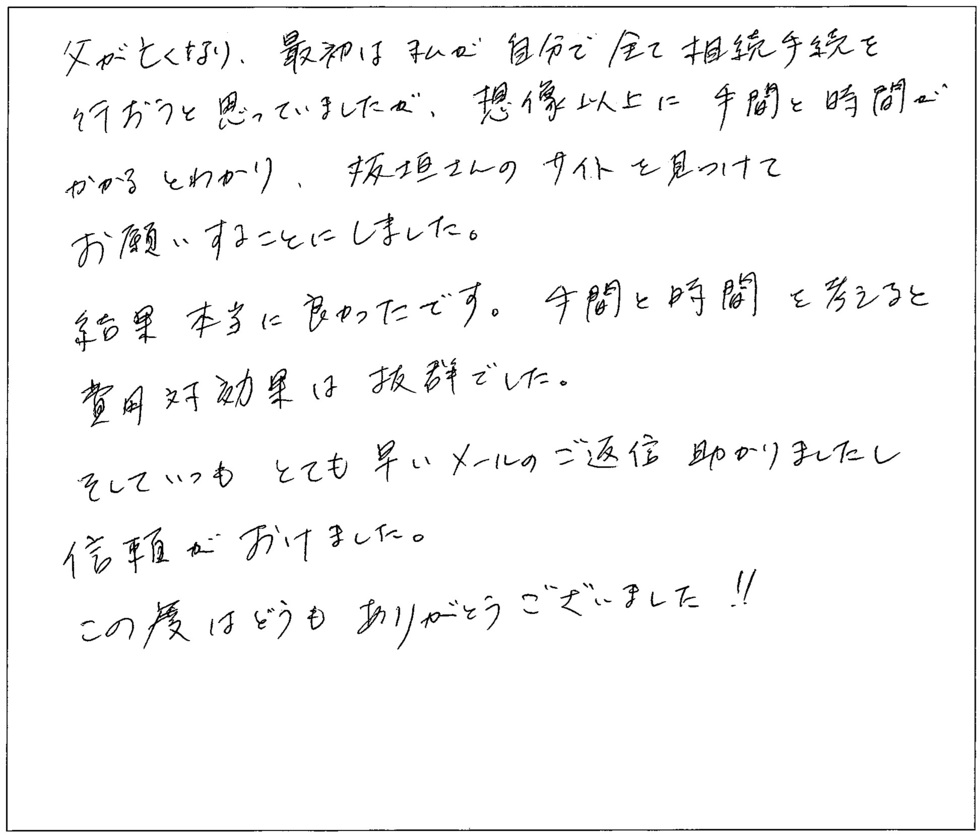 父が亡くなり、最初は私が自分で全て相続手続を
行おうと思っていましたが、想像以上に手間と時間が
かかるとわかり、板垣さんのサイトを見つけて
お願いすることにしました。
結果本当に良かったです。手間と時間を考えると
費用対効果は抜群でした。
そしていつもとても早いメールのご返信助かりましたし
信頼がおけました。
この度はどうもありがとうございました!!